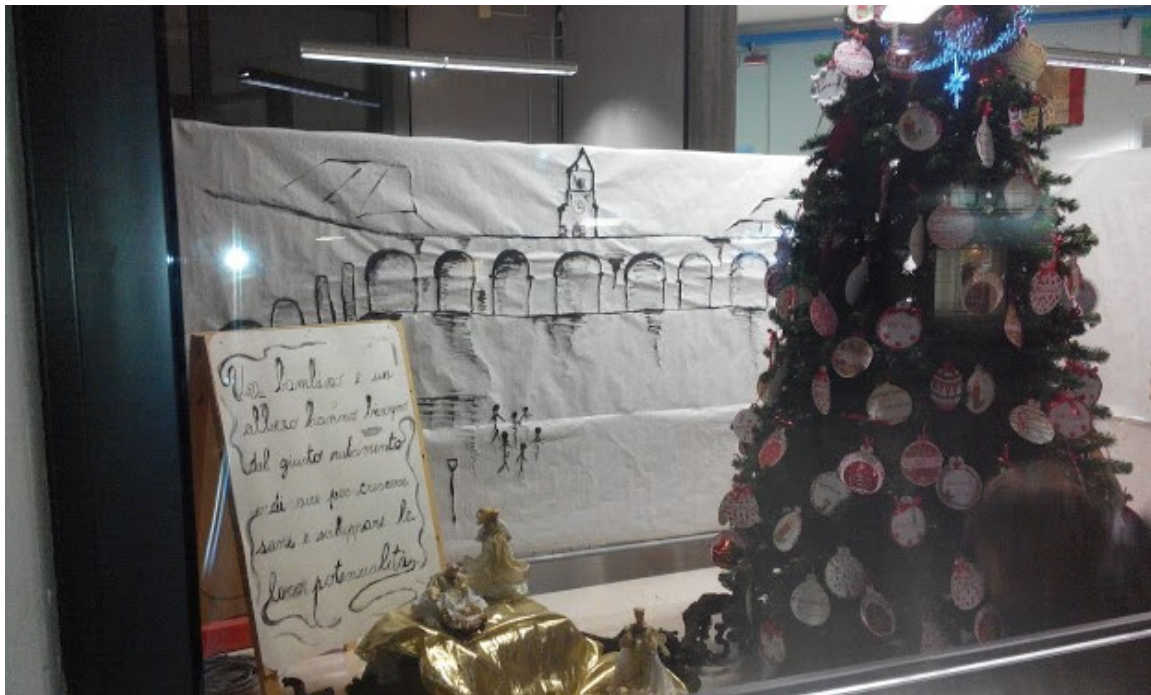 Un bambino e un
albero hanno bisogno
del giusto nutrimento
e di cure per crescere
sani e sviluppare le
loro potenzialità